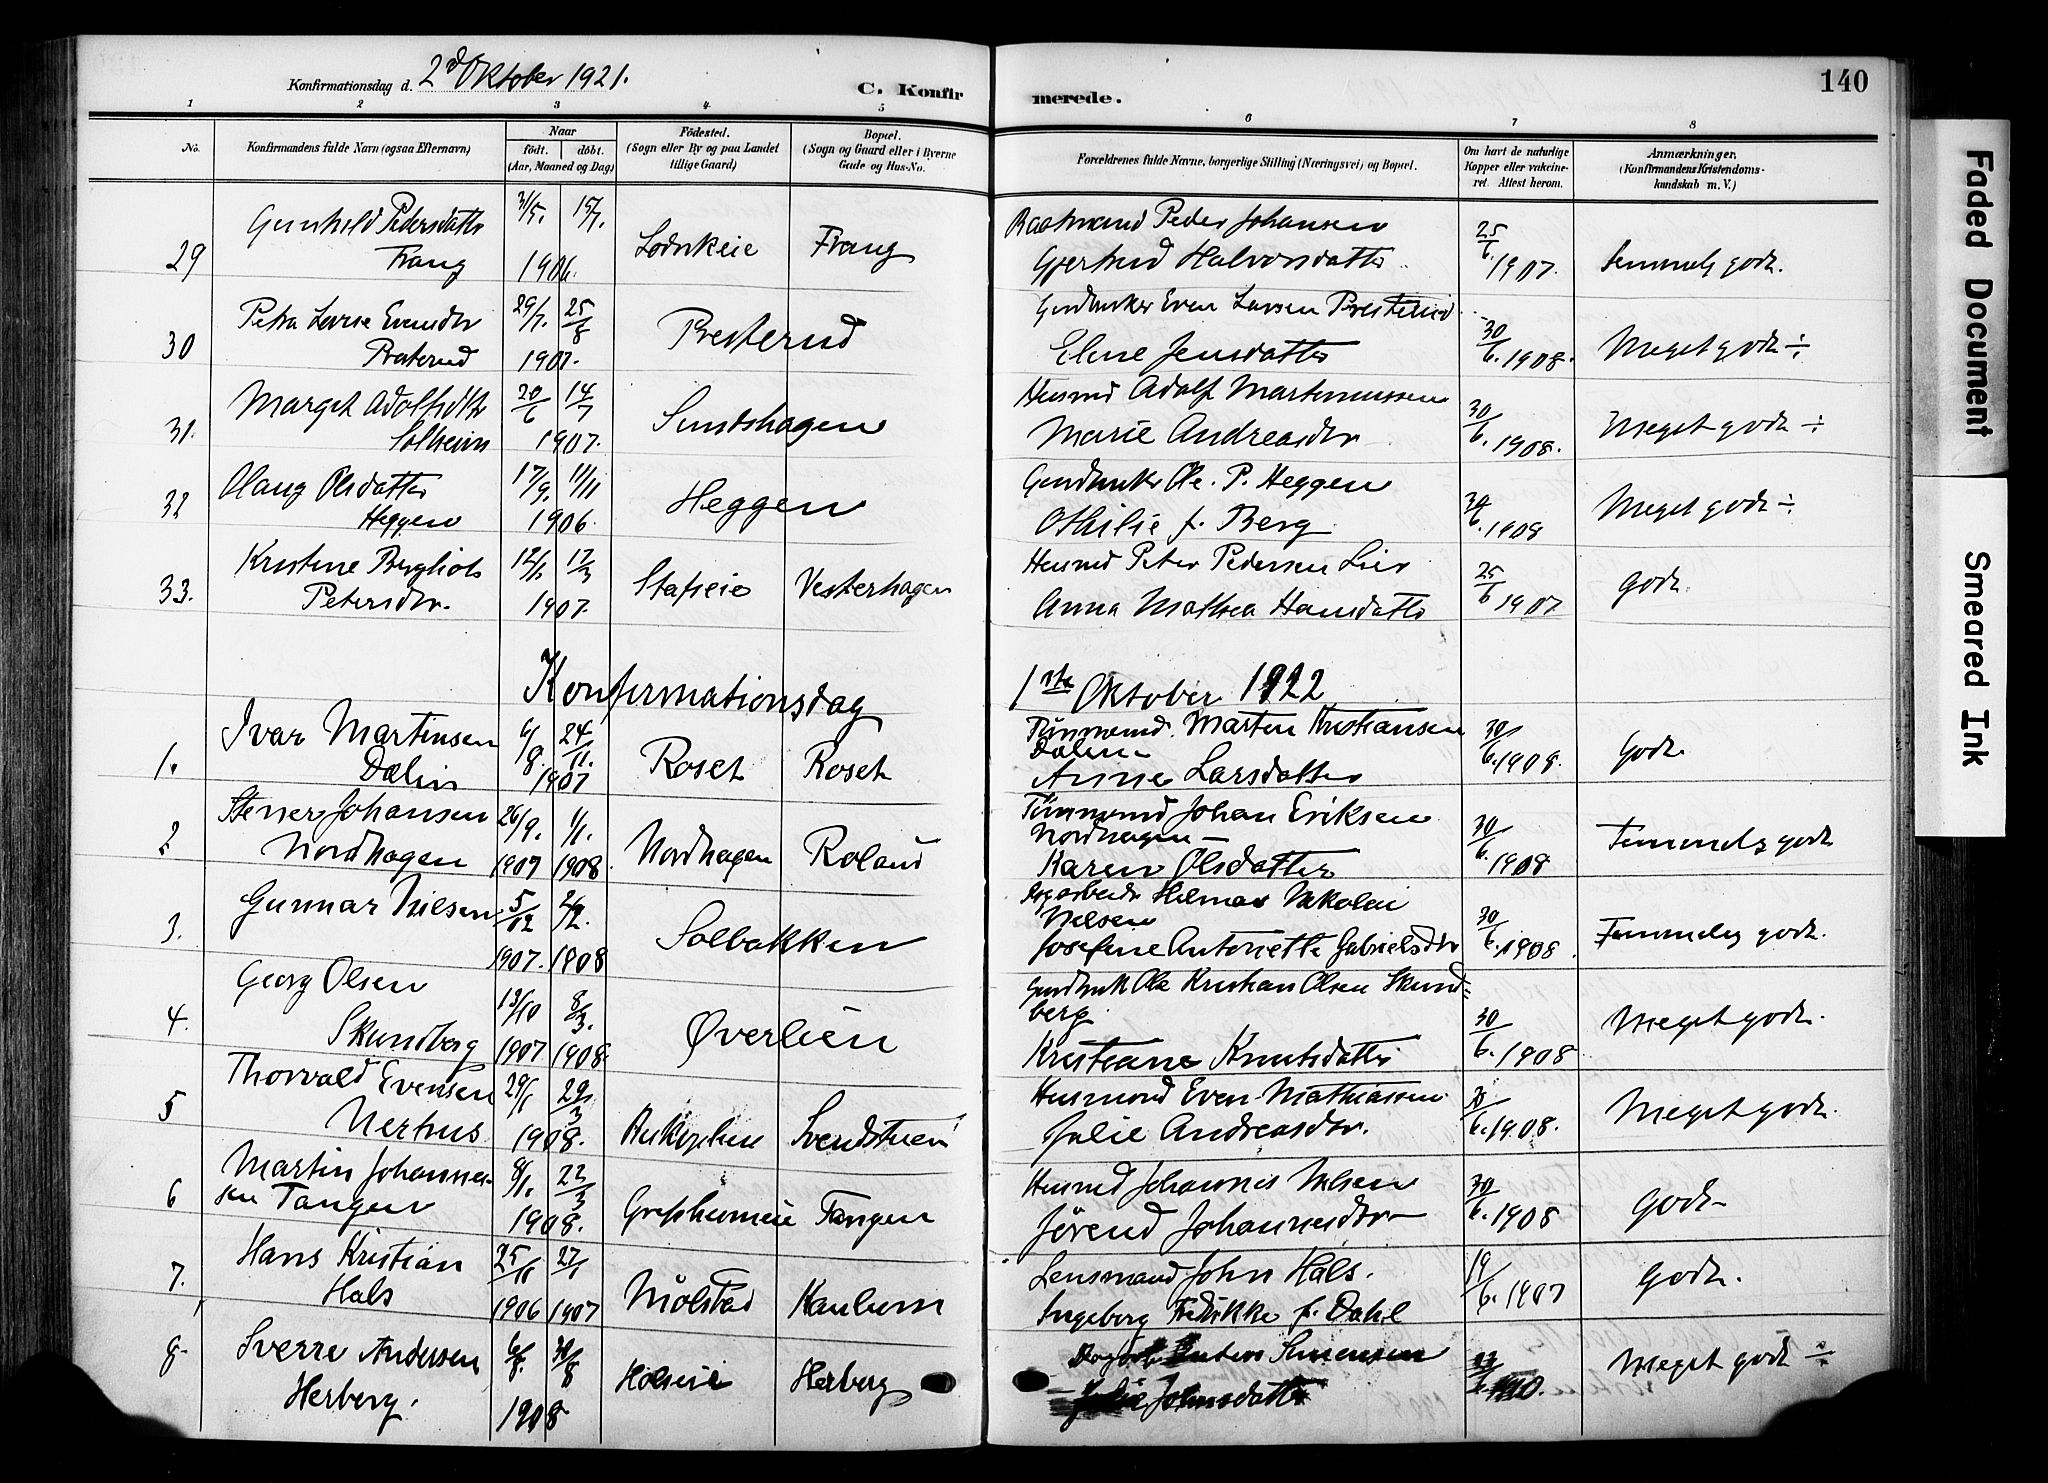 Konfirmationsdag d. 2d Oktober 1921.
C. Konfir
merede.
140
1 2 3 4 5 6 7 8
No.
Konfirmandens fulde Navn (ogsaa Efternavn)
Naar
født. døbt.
(Aar, Maaned og Dag)
Fødested.
(Sogn eller By og paa Landet
tillige Gaard)
Bopæl.
(Sogn og Gaard eller i Byerne
Gade og Hus-No.
Forældrenes fulde Navne, borgerlige Stilling (Næringsvei) og Bopæl.
Om havt de naturlige
Kopper eller vakcine-
ret Attest herom.
Anmærkninger.
(Konfirmandens Kristendoms-
kundskab m. V.)
Gunhild Pedersdatter 31/5. 15/7. Peder Johansen 25/6
29 Frang 1906. Frang Gjertrud Halvorsdatter 1907. Temmelig godt.
Petra Lovise Evensdtr 29/7. 25/8 Gardbruker Even Larsen Presterud
30 Presterud 1907. Presterud Eline Jensdatter 30/6. 1908. Meget godt ÷
Margit Adolfsdtr 20/6 14/7 Husmd Adolf Martinussen
31. Solheim 1907. Sundshagen Marie Andreasdtr 30/6. 1908. Meget godt ÷
Olaug Olsdatter 17/9. 11/11 Gardbruker Ole. P. Heggen
32 Heggen 1906. Heggen Othilie f. Berg 30/6. 1908 Meget godt ÷
Kristine Bergliot 12/1 17/3 Husmd Peter Pedersen Lier
33. Petersdtr. 1907. Stafseie Vesterhagen Anna Mathea Hansdatter 25/6 1907 godt.
Konfirmationsdag 1ste Oktober 1922
Ivar Martinsen 6/8. 24/11. Tømmermd. Martin Kristiansen
Dalen
1. Dalen 1907 Roset Roset Anne Larsdatter 30/6. 1908. Godt
Stener Johansen 26/9. 1/1. Tømmermd Johan Eriksen
Nordhagen
2 Nordhagen 1907 1908. Nordhagen Roland Karen Olsdatter 30/6. 1908 Temmelig godt
Gunnar Nilsen 5/12 2/2. Dagarbeider Hilmar Nikolai
Nilsen
3. 1907. 1908 Solbakken Josefine Antoriette Gabrielsdtr 30/6. 1908. Temmelig godt.
Georg Olsen 13/10 8/3. Gardbruk Ole Kristian Olsen Skund=
berg
4. Skundberg 1907 1908. Øverlien Kristiane Knutsdatter 30/6. 1908 Meget godt.
Thorvald Evensen 29/1 29/3 Husmand Even Mathiassen
5 Nerhus 1908. Svendstuen Julie Andreasdtr. 30/6. 1908. Meget godt.
Martin Johannes- 8/1. 22/3 Husmd Johannes Nilsen
6 sen Tangen 1908. Grefsheimeie Tangen Jørend Johannesdtr 30/6. 1908 Godt
Hans Kristian 25/11 27/1 Lensmand John Hals.
7. Hals 1906 1907 Mølstad Kaulum Ingeborg Fredrikke f. Dahl 19/6. 1907 Godt.
Sverre Andersen 6/7. 30/8
8 Herberg. 1908 Holseie Herberg Johnsdatter Meget godt ÷
Faded Document
Smeared Ink